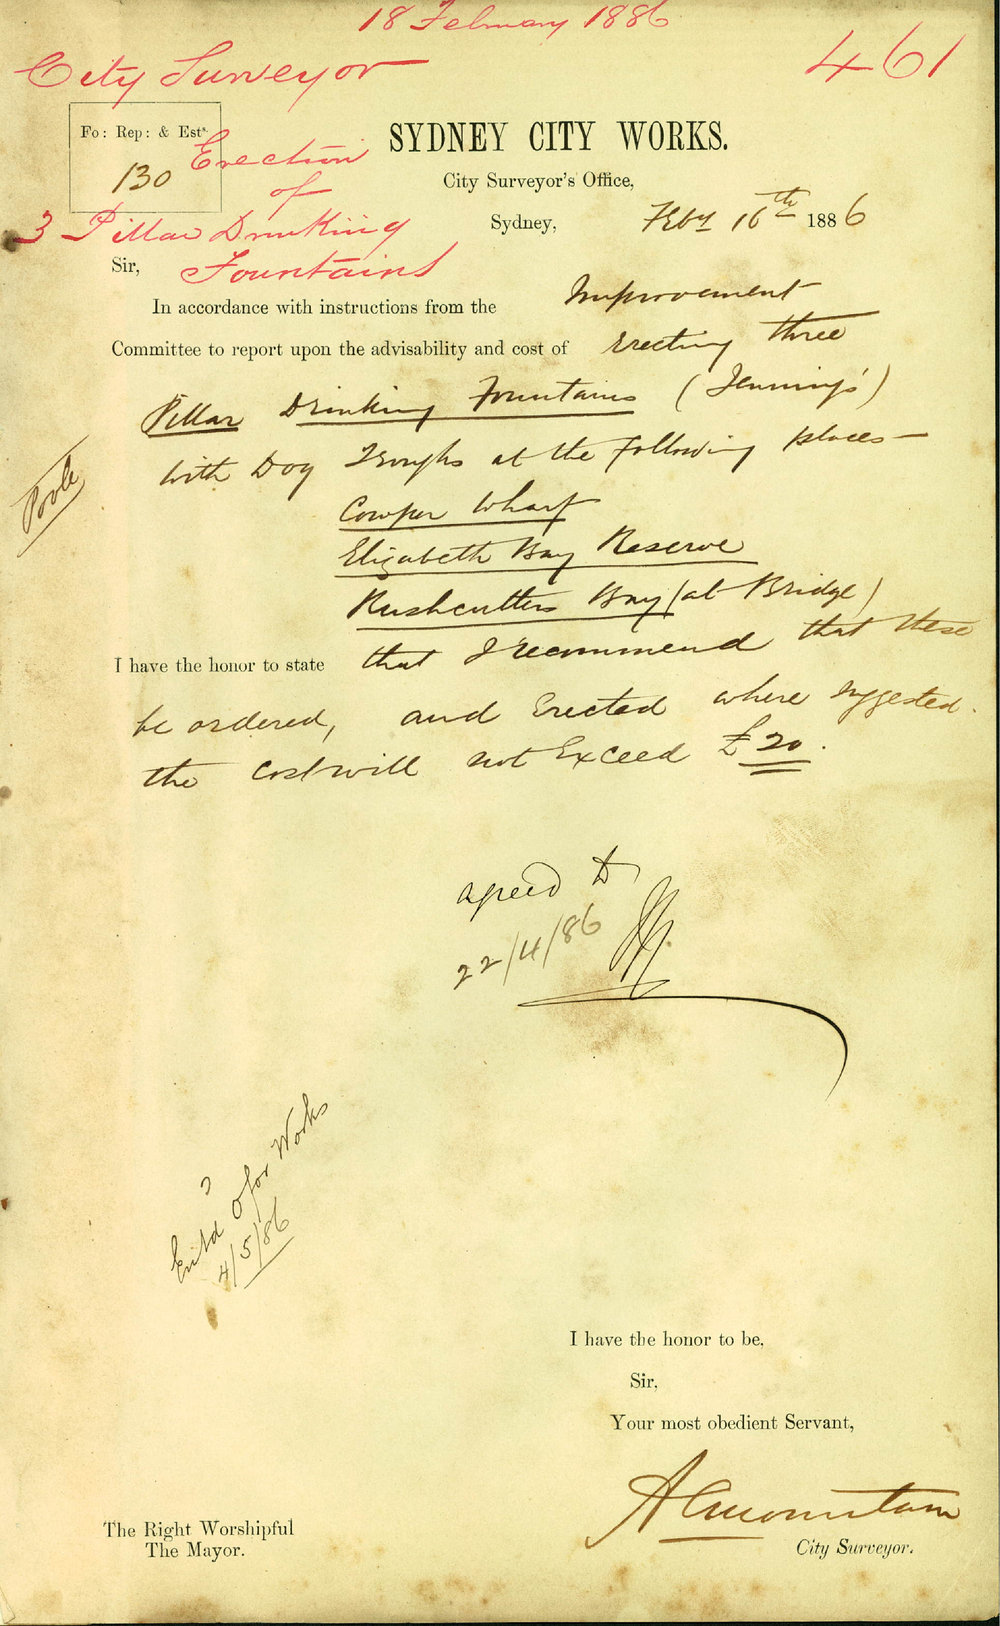 18 February 1886
City Surveyor
461
Fo: Rep: & Ests.
130
Erection
of
3 Pillar Drinking
Fountains
SYDNEY CITY WORKS.
City Surveyor's Office,
Sydney, Feby 16th 1886
Sir,
In accordance with instructions from the Improvement
Committee to report upon the advisability and cost of Erecting three
Pillar Drinking Fountains (Jennings')
with Dog Troughs at the following places—
Cowper Wharf
Elizabeth Bay Reserve
Rushcutters Bay (at Bridge)
I have the honor to state that I recommend that these
be ordered, and Erected where suggested.
the cost will not Exceed £20.
Poole
agreed to
22/4/86
Ent'd O for Works
4/5/86
I have the honor to be,
Sir,
Your most obedient Servant,
City Surveyor.
The Right Worshipful
The Mayor.